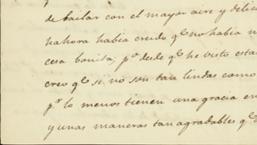 de bailar con el mayor aire y delic
hahora habia creido q.e no habia n
cosa bonita, p.o desde q.e he visto esta
creo q.e si no son tan lindas como
p.r lo menos tienen una gracia en
y unas maneras tan agradables q.e